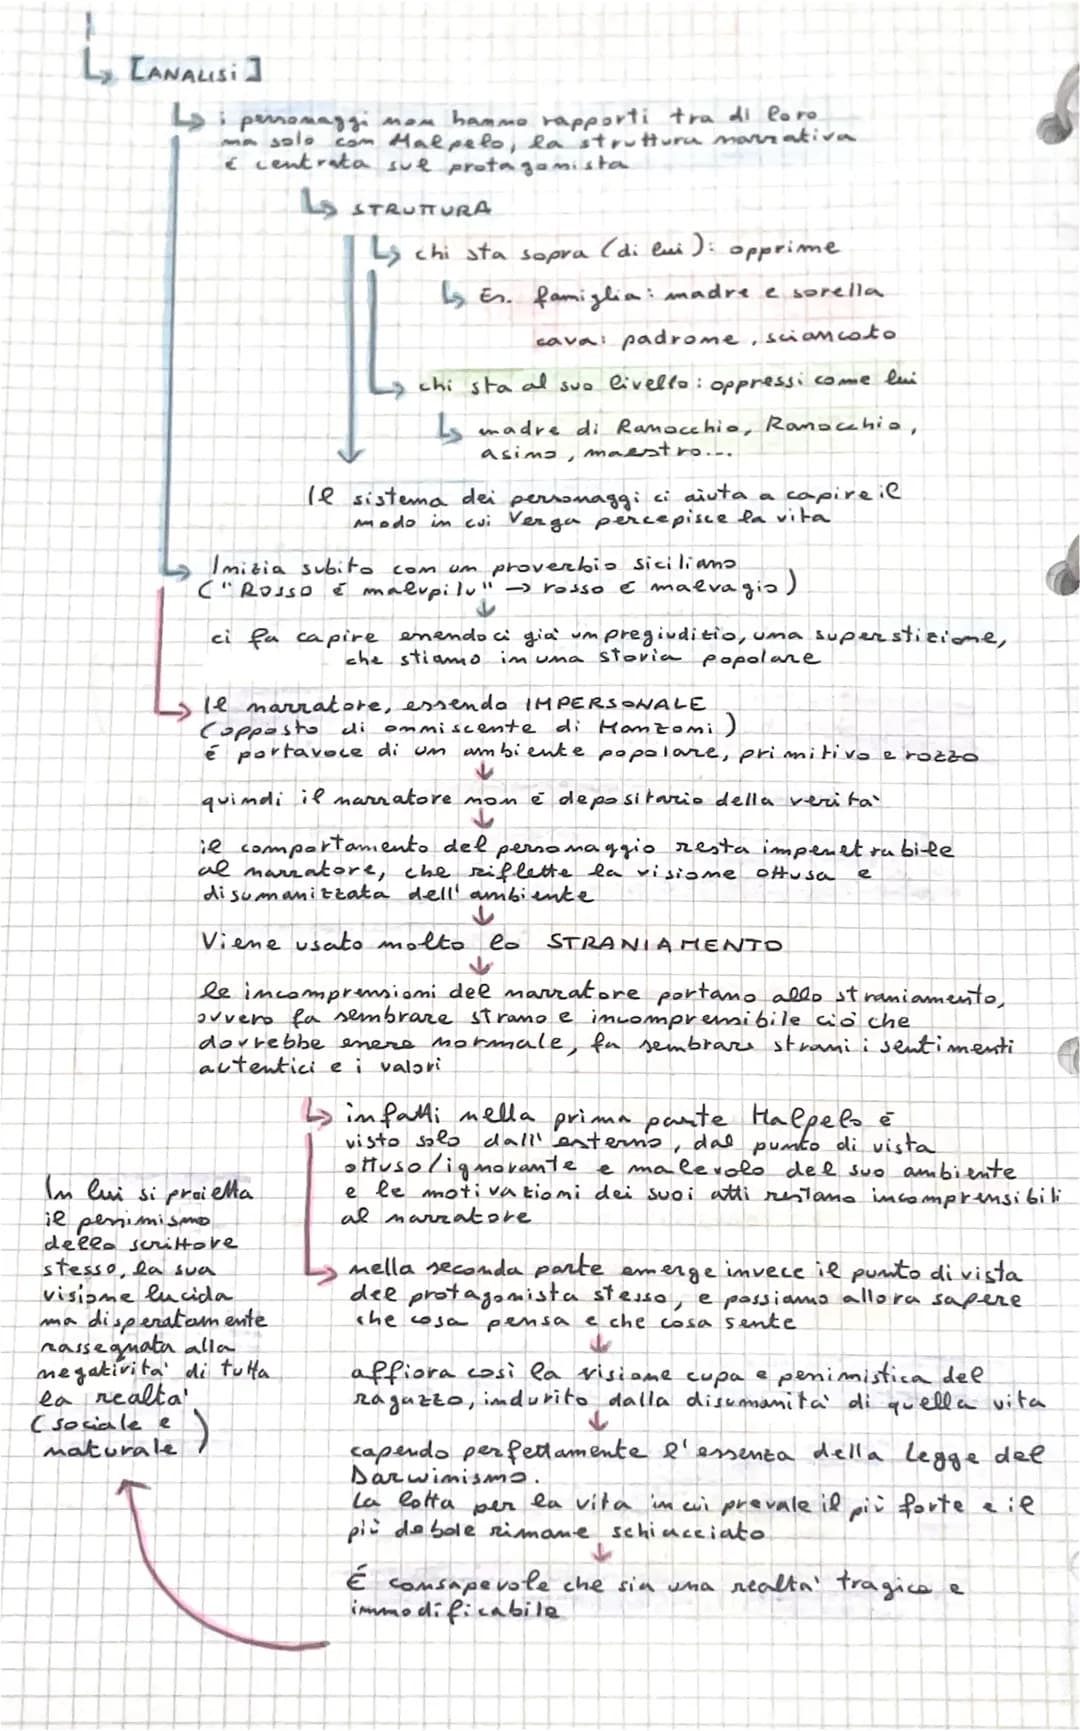 [ANALISI]
i personaggi non hanno rapporti tra di loro
ma solo con Malpelo, la struttura narrativa
è centrata sul protagonista
STRUTTURA
chi sta sopra (di lui): opprime
Es. famiglia: madre e sorella
cava: padrone, sciancato
chi sta al suo livello: oppressi come lui
madre di Ranocchio, Ranocchio,
asino, maestro...
Il sistema dei personaggi ci aiuta a capire il
modo in cui Verga percepisce la vita
Inizia subito con un proverbio siciliano
("Rosso è malupilu" → rosso è malvagio)
ci fa capire essendoci già un pregiudizio, una superstizione,
che stiamo in una storia popolare
Il narratore, essendo IMPERSONALE
(opposto di onniscente di Manzoni)
è portavoce di un ambiente popolare, primitivo e rozzo
quindi il narratore non è depositario della verità
il comportamento del personaggio resta impenetrabile
al narratore, che riflette la visione ottusa e
disumanizzata dell'ambiente
Viene usato molto lo STRANIAMENTO
le incomprensioni del narratore portano allo straniamento,
ovvero fa sembrare strano e incomprensibile ciò che
dovrebbe essere normale, fa sembrare strani i sentimenti
autentici e i valori
infatti nella prima parte Malpelo è
visto solo dall'esterno, dal punto di vista
ottuso/ignorante e malevolo del suo ambiente
e le motivazioni dei suoi atti restano incomprensibili
al narratore
nella seconda parte emerge invece il punto di vista
del protagonista stesso, e possiamo allora sapere
che cosa pensa e che cosa sente
affiora così la visione cupa e pessimistica del
ragazzo, indurito dalla disumanità di quella vita
capendo perfettamente l'essenza della legge del
Darwinismo.
La lotta per la vita in cui prevale il più forte e il
più debole rimane schiacciato
È consapevole che sia una realtà tragica e
immodificabile
In lui si proietta
il pessimismo
dello scrittore
stesso, la sua
visione lucida
ma disperatamente
rassegnata alla
negatività di tutta
la realtà
(sociale e
naturale)